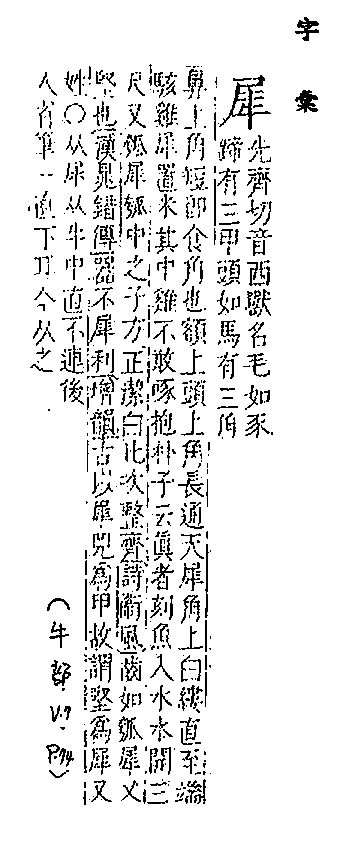 字彙
犀
先齊切音西獸名毛如豕
蹄有三甲頭如馬有三角
鼻上角短卽食角也額上頭上角長通天犀角上白縷直至端
駭雞犀置米其中雞不敢啄抱朴子云眞者刻魚入水水開三
尺又瓠犀瓠中之子方正潔白比次整齊詩衞風齒如瓠犀又
堅也漢鼂錯傳器不犀利增韻古以犀兕爲甲故謂堅爲犀又
姓〇从𡱝从牛中直不連後
人省筆一直下耳今从之
(牛部 V.7 P.74)